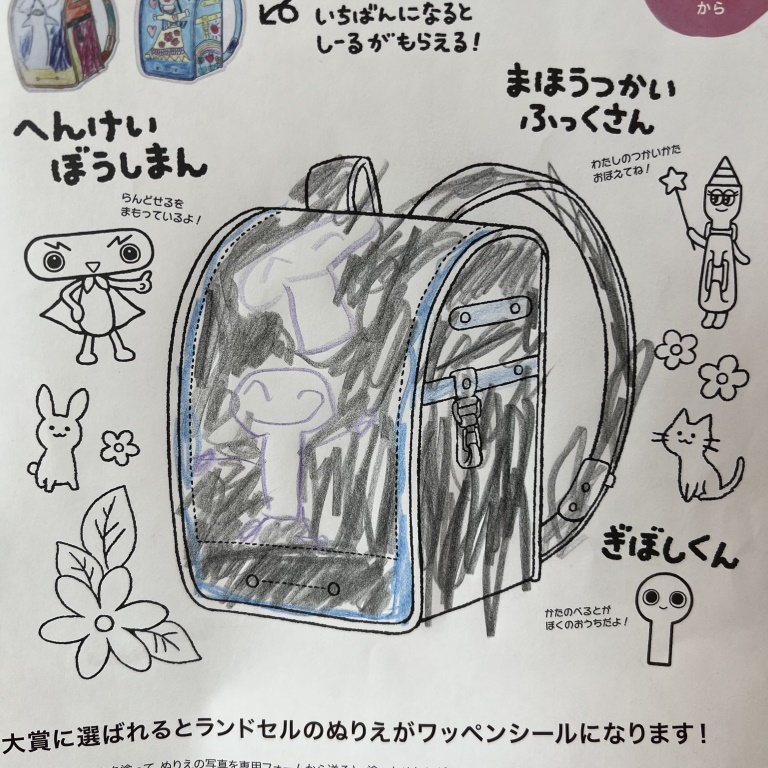 から
いちばんになると
しーるがもらえる!
まほうつかい
ふっくさん
わたしのつかいかた
おぼえてね!
へんけい
ぼうしまん
らんどせるを
まもっているよ!
ぎぼしくん
かたのべるとが
ぼくのおうちだよ!
大賞に選ばれるとランドセルのぬりえがワッペンシールになります!